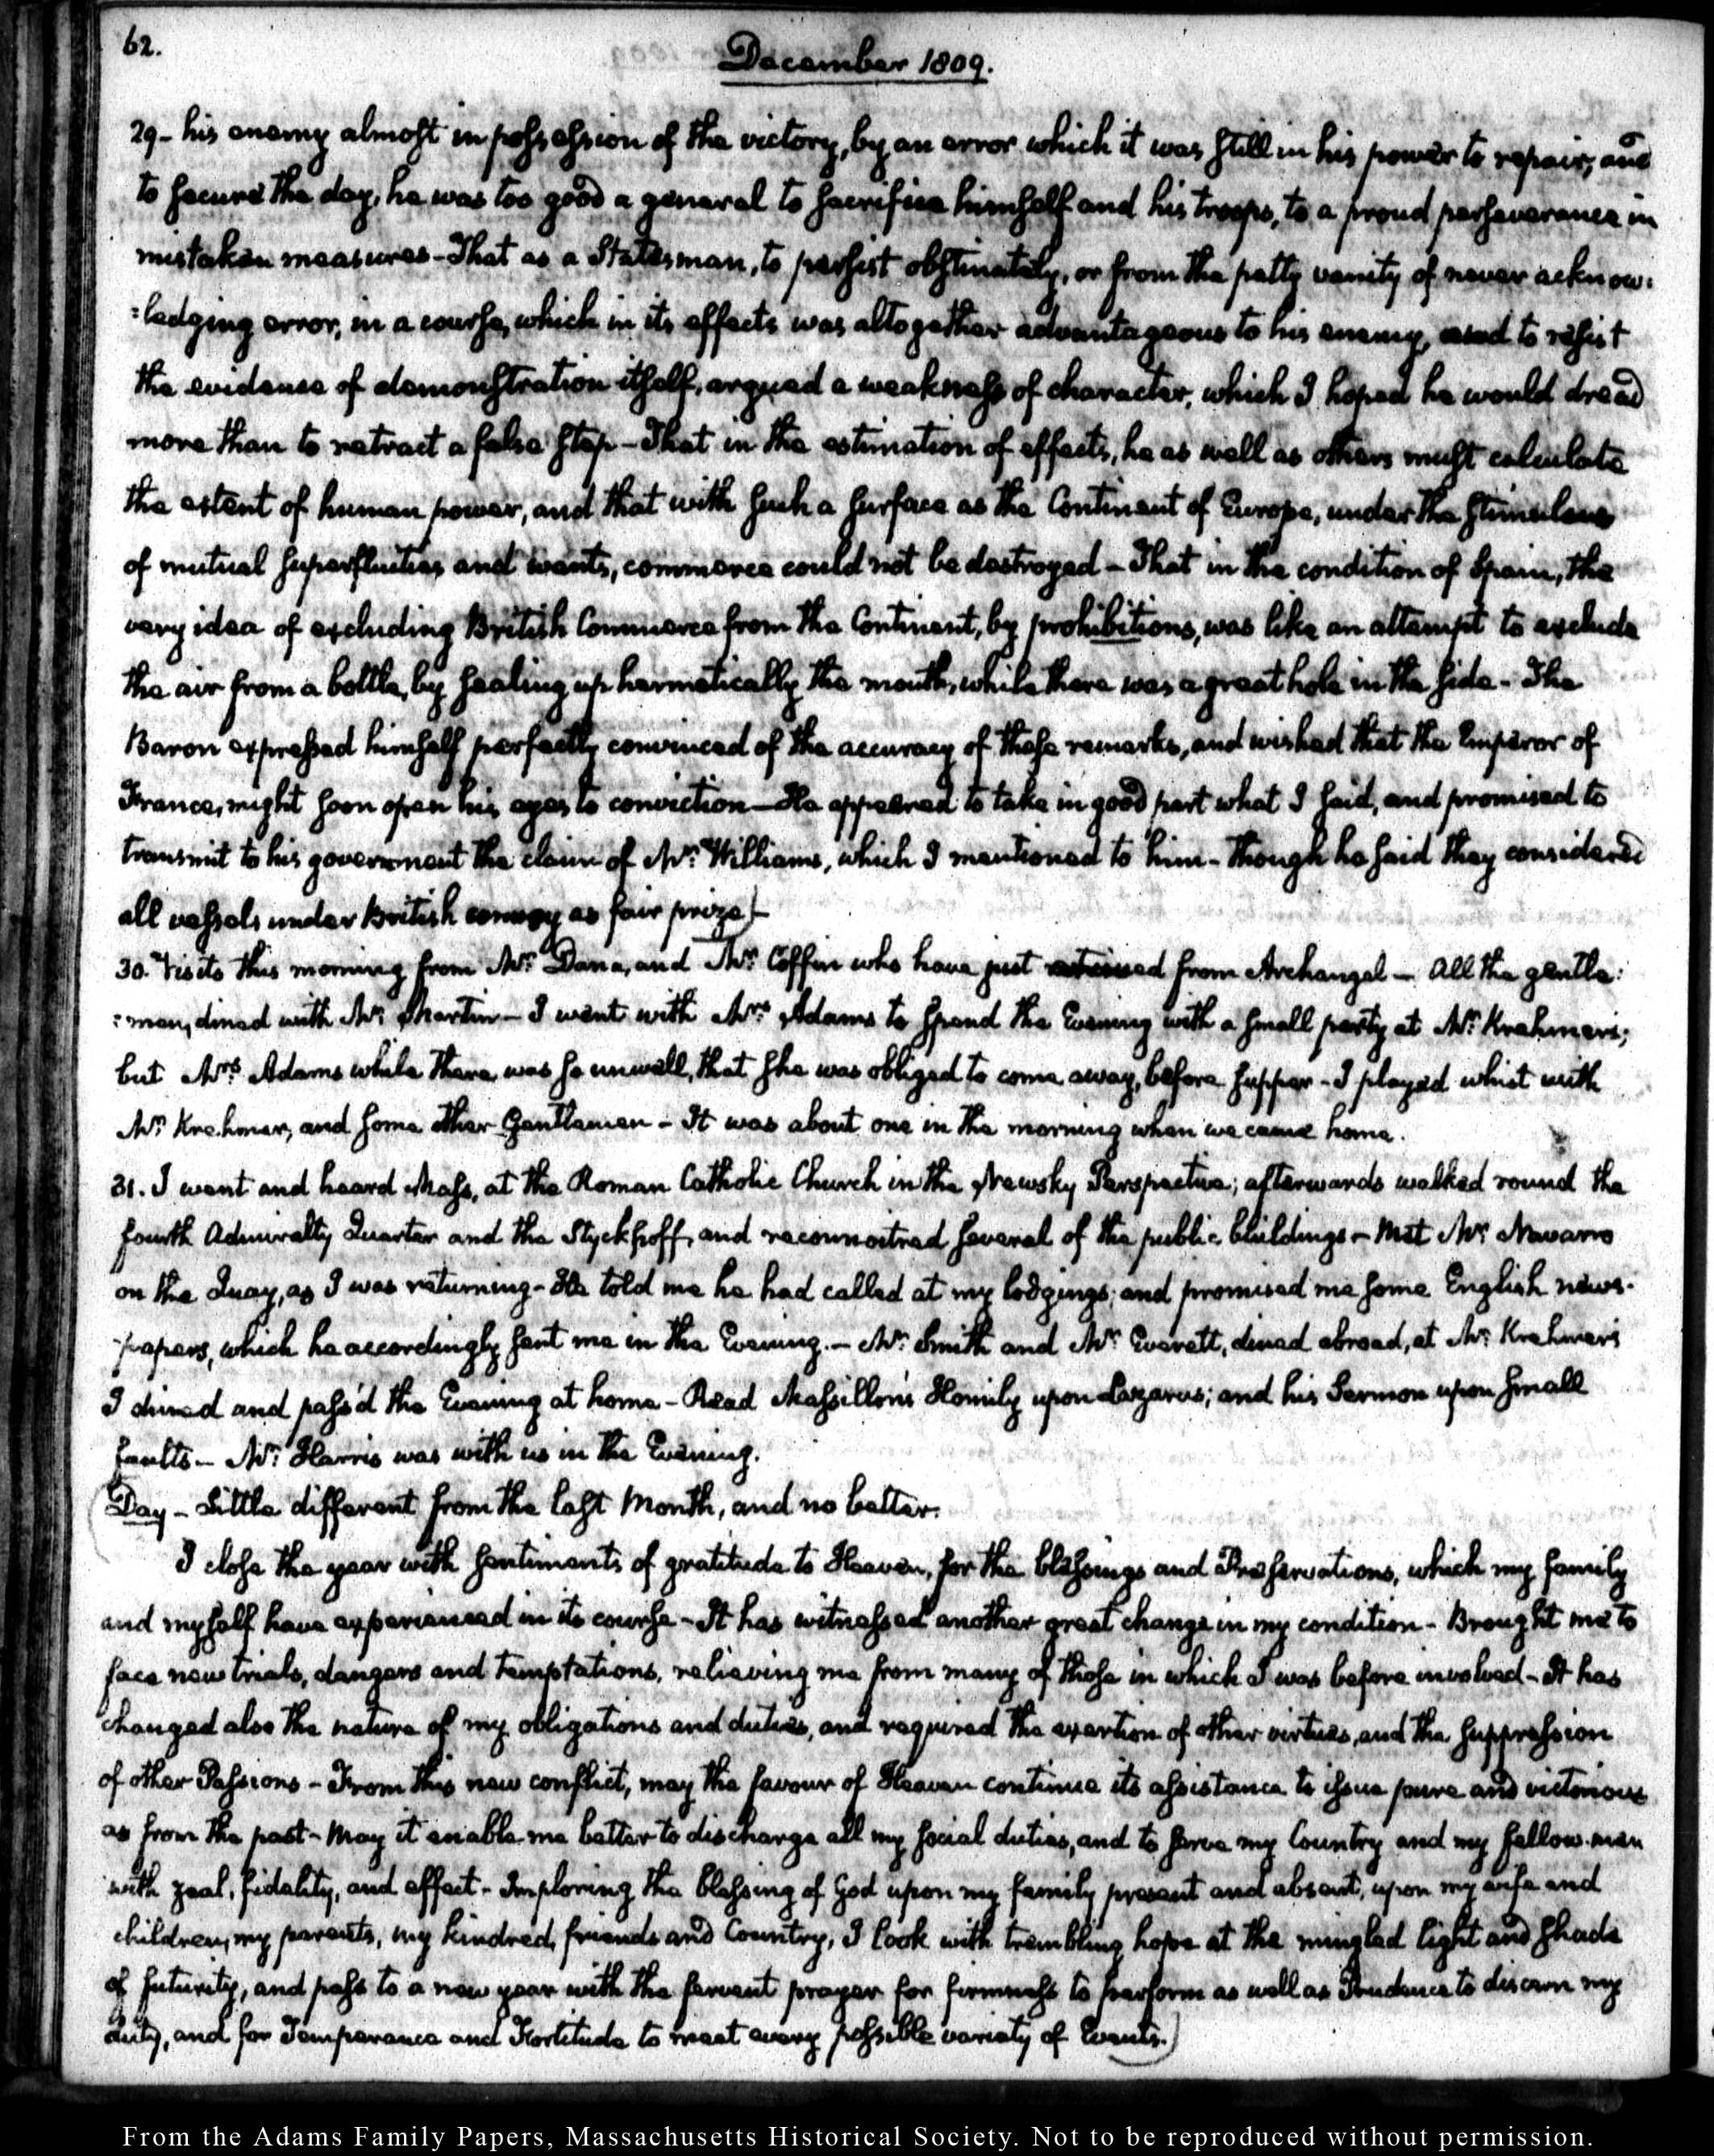 62.
December 1809.
29- his enemy almost in possession of the victory, by an error which it was still in his power to repair, and
to secure the day, he was too good a general to sacrifice himself and his troops, to a proud perseverance in
mistaken measures - That as a Statesman, to persist obstinately, or from the petty vanity of never acknow:
:ledging error, in a course, which in its effects was altogether advantageous to his enemy, and to resist
the evidence of demonstration itself, argued a weakness of character, which I hoped he would dread
more than to retract a false step - That in the estimation of effects, he as well as others must calculate
the extent of human power, and that with such a surface as the Continent of Europe, under the stimulus
of mutual superfluities and wants, commerce could not be destroyed - That in the condition of Spain, the
very idea of excluding British Commerce from the Continent, by prohibitions, was like an attempt to exclude
the air from a bottle, by sealing up hermetically the mouth, while there was a great hole in the side - The
Baron expressed himself perfectly convinced of the accuracy of these remarks, and wished that the Emperor of
France, might soon open his eyes to conviction - He appeared to take in good part what I said, and promised to
transmit to his government the claim of Mr. Williams, which I mentioned to him - though he said they considered
all vessels under British convoy as fair prize)-
30. Visits this morning from Mr. Dana, and Mr. Coffin who have just arrived from Archangel - All the gentle:
:men, dined with Mr. Martin - I went with Mrs. Adams to spend the Evening with a small party at Mr. Krehmer's;
but Mrs. Adams while there was so unwell, that she was obliged to come away, before supper - I played whist with
Mr. Krehmer, and some other Gentlemen - It was about one in the morning when we came home.
31. I went and heard Mass, at the Roman Catholic Church in the Newsky Perspective; afterwards walked round the
fourth Admiralty Quarter and the Styckhoff, and reconnoitred several of the public buildings - Met Mr. Navarro
on the Quay, as I was returning - He told me he had called at my lodgings; and promised me some English news-
-papers, which he accordingly sent me in the Evening. - Mr. Smith and Mr. Everett, dined abroad, at Mr. Krehmer's
I dined and pass'd the Evening at home - Read Massillon's Homily upon Lazarus; and his Sermon upon small
faults - Mr. Harris was with us in the Evening.
(Day - Little different from the last Month, and no better.
I close the year with sentiments of gratitude to Heaven, for the blessings and Preservations, which my family
and myself have experienced in its course - It has witnessed another great change in my condition - Brought me to
face new trials, dangers and temptations, relieving me from many of those in which I was before involved - It has
changed also the nature of my obligations and duties, and required the exertion of other virtues, and the suppression
of other Passions - From this new conflict, may the favour of Heaven continue its assistance to issue pure and victorious
as from the past - May it enable me better to discharge all my social duties, and to serve my Country and my fellow-men
with zeal, fidelity, and effect - Imploring the blessing of God upon my family present and absent, upon my wife and
children, my parents, my kindred, friends and Country, I look with trembling hope at the mingled light and shade
of futurity, and pass to a new year with the fervent prayer for firmness to perform as well as Prudence to discern my
duty, and for Temperance and Fortitude to meet every possible variety of Events.)
From the Adams Family Papers, Massachusetts Historical Society. Not to be reproduced without permission.